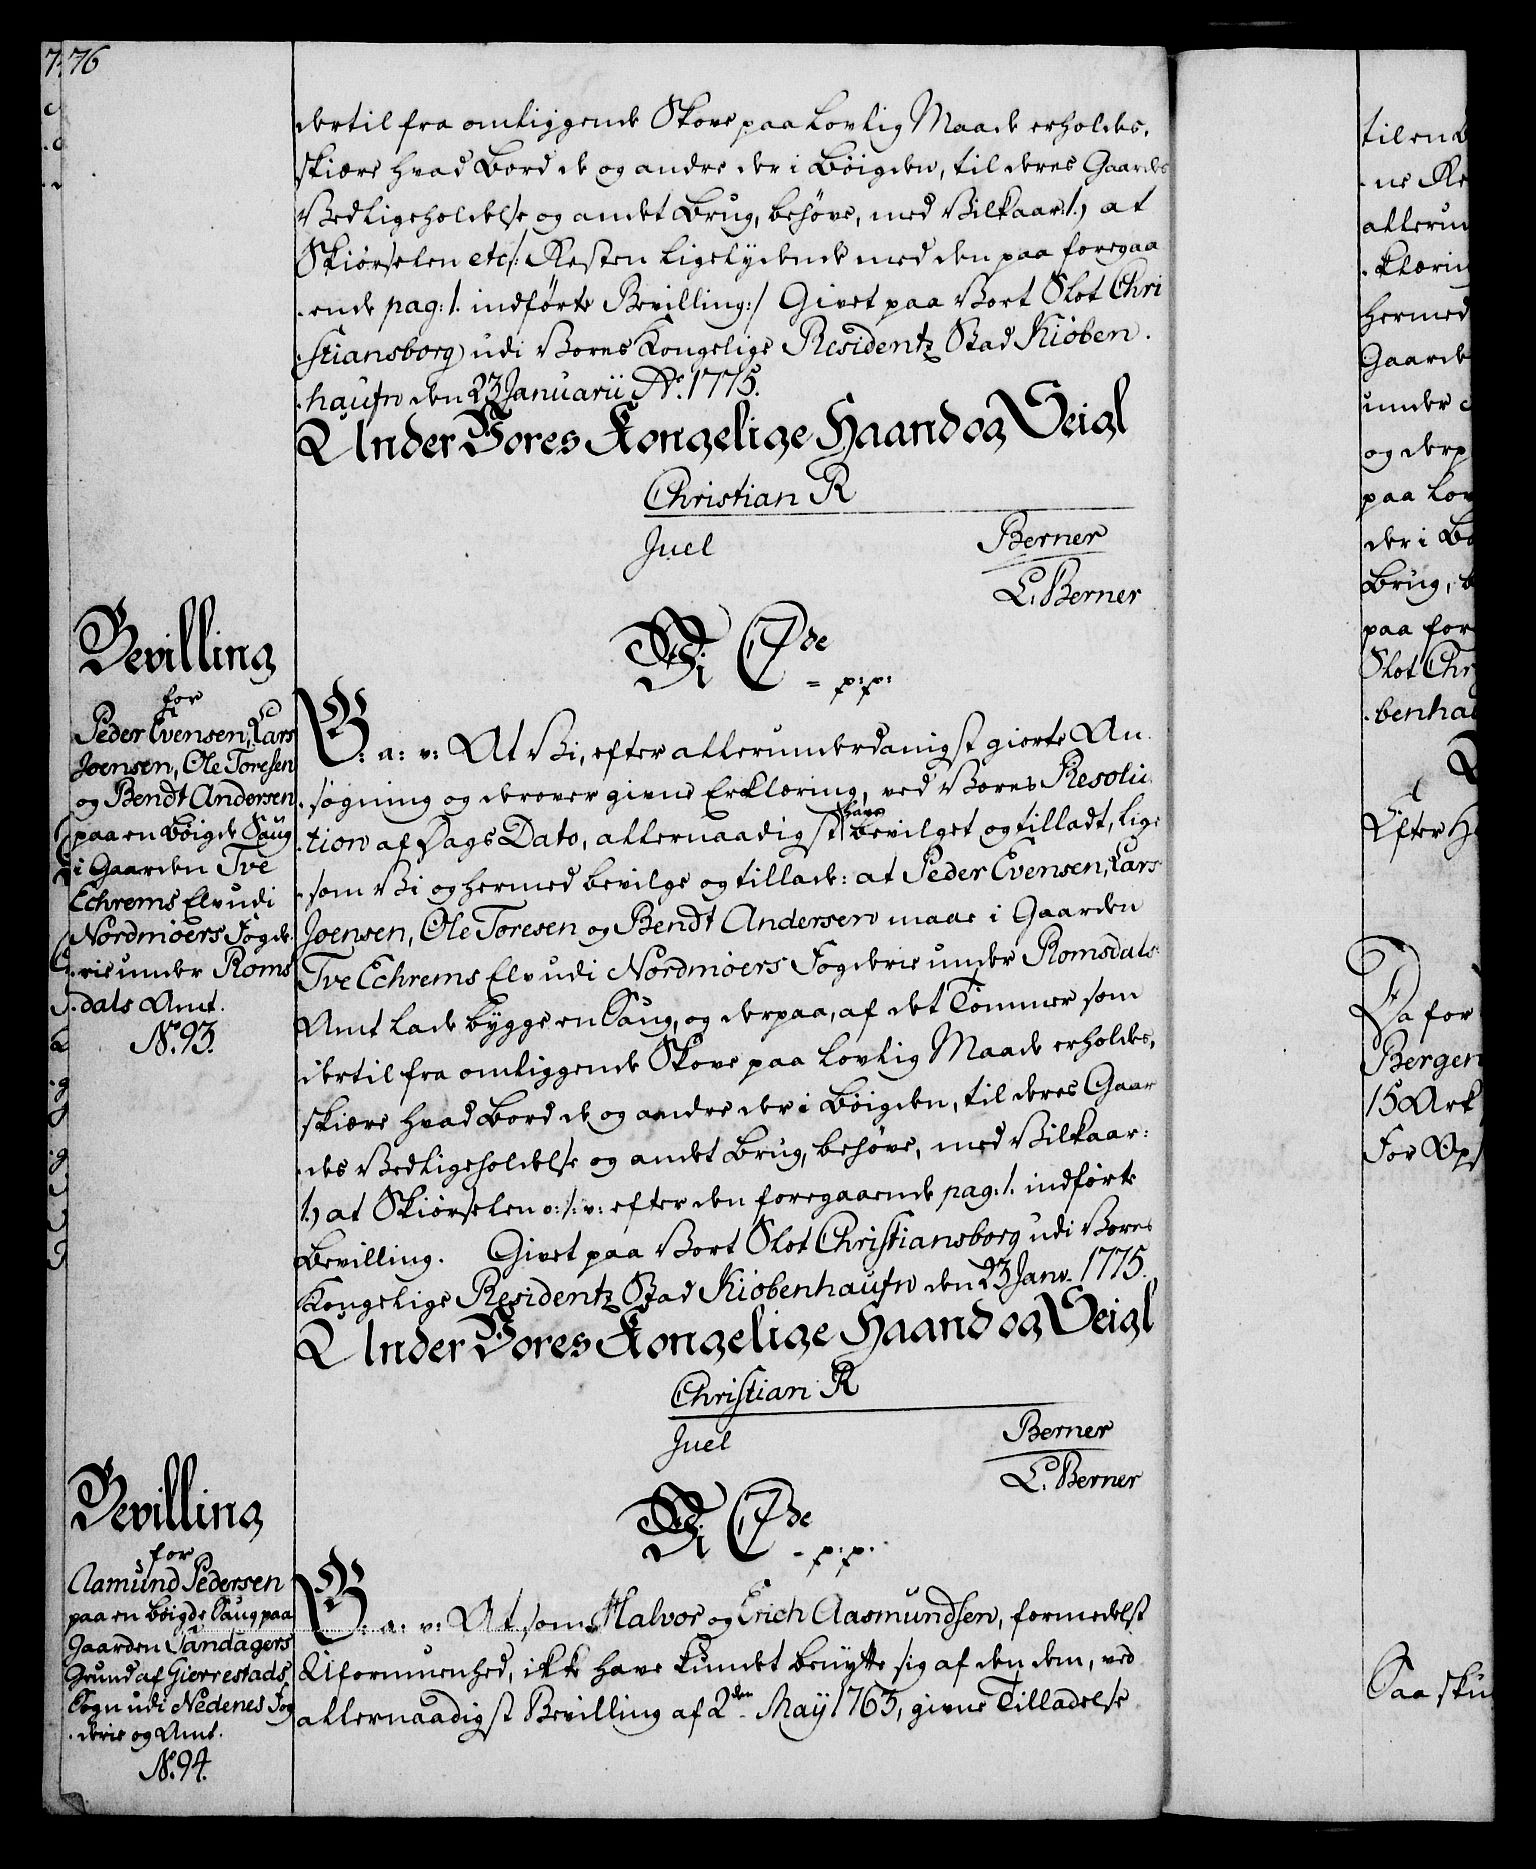 76
dertil fra omliggende Skove paa Lovlig Maade erholdes,
skiære hvad Bord de og andre der i Bøigden, til deres Gaardes
Vedligeholdelse og andet Brug, behøve, med Vilkaar: 1.) at
Skiørselen etc/: Resten ligelydende med den paa foregaa
-ende pag: 1. indførte Bevilling:/ Givet paa Vort Slot Chri
-stiansborg udi Vores Kongelige Residentz Stad Kiøben-
-haufn den 23 Januarii Ao. 1775.
Under Vores Kongelige Haand og Seigl
Christian R
Juel Berner
L. Berner
Bevilling
for
Peder Evensen, Lars
Joensen, Ole Toresen
og Bendt Andersen
paa en Bøigde Saug
i Gaarden Tve
Echrems Elv udi
Nordmøers Fogde-
-rie under Roms
-dals Amt.
No. 93.
Vi C 7de
- p: p:
G: a: v: At Vi, efter allerunderdanigst giorte An-
-søgning og derover givne Erklæring, ved Vores Resolu-
-tion af Dags Dato, allernaadigst have bevilget og tilladt, lige
-som Vi og hermed bevilge og tillade: at Peder Evensen, Lars
Joensen, Ole Toresen og Bendt Andersen maae i Gaarden
Tve Echrems Elv udi Nordmøers Fogderie under Romsdals
Amt lade bygge en Saug, og derpaa, af det Tømmer som
dertil fra omliggende Skove paa Lovlig Maade erholdes,
skiære hvad Bord de og andre der i Bøigden, til deres Gaar
-des Vedligeholdelse og andet Brug, behøve, med Vilkaar:
1.) at Skiørselen o: s: v: efter den foregaaende pag: 1. indførte
Bevilling. Givet paa Vort Slot Christiansborg udi Vores
Kongelige Residentz Stad Kiøbenhaufn den 23 Janv. 1775.
Under Vores Kongelige Haand og Seigl
Christian R
Juel Berner
L. Berner
Bevilling
for
Aamund Pedersen
paa en Bøigde Saug paa
Gaarden Sandagers
Grund af Gierrestads
Sogn udi Nedenes Fog
-derie og Amt.
No. 94.
Vi C 7de
- p: p:
G: a: v: At, som Halvor og Erich Aasmundsen, formedelst
Uformuenhed, ikke have kundet benytte sig af den dem, ved
allernaadigst Bevilling af 2den May 1765, givne Tilladelse
til en B
-ne Re
allerun
-klærin
hermed
Gaarde
under
og derp
paa Lov
der i Bø
Brug, b
paa for
Slot Chr
-benhau
Efter H
Da for
Bergen
15 Ark
For Ops
Saa sku